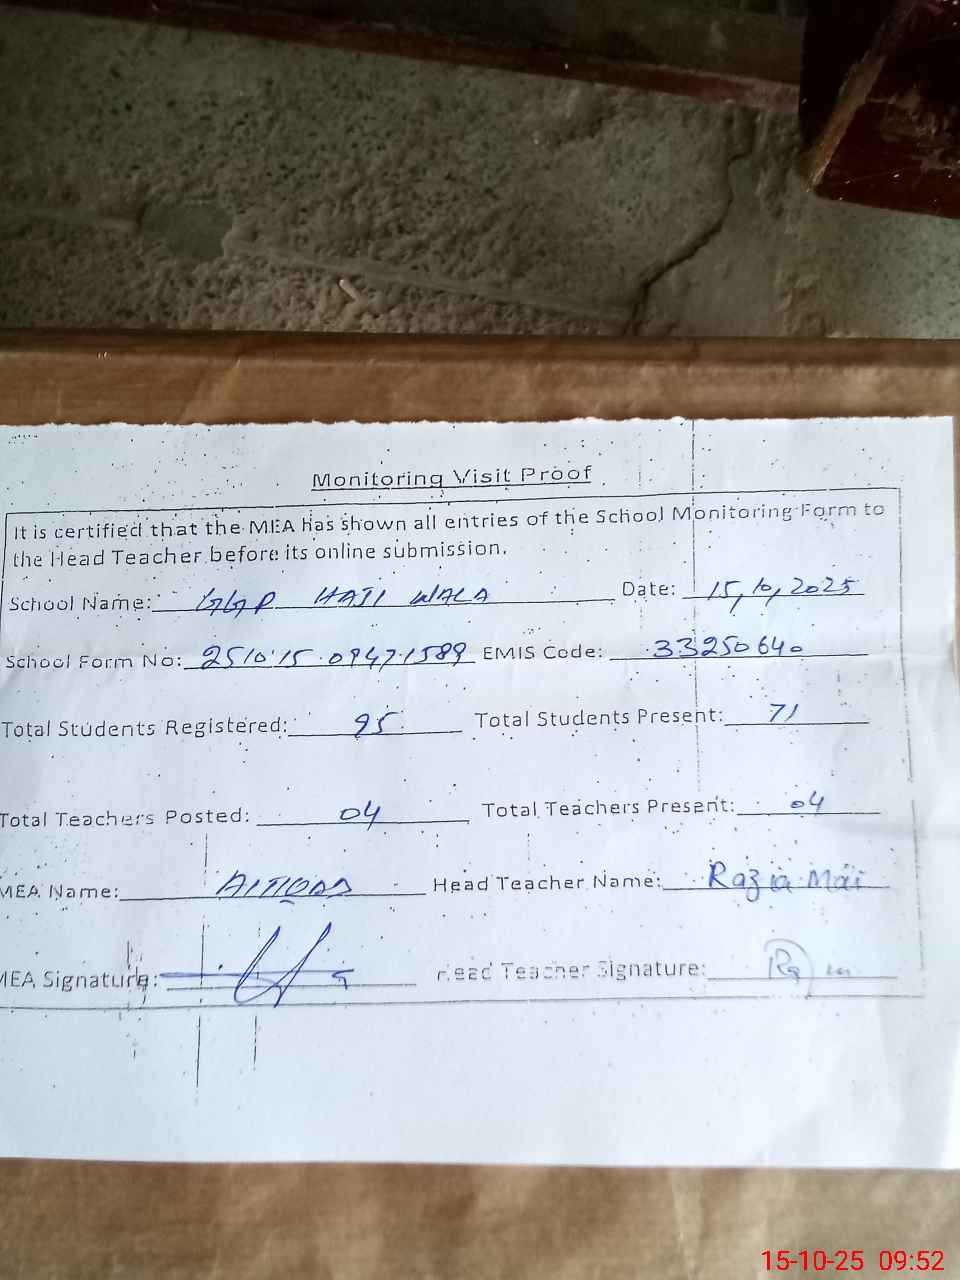 Monitoring Visit Proof
It is certified that the MEA has shown all entries of the School Monitoring Form to
the Head Teacher before its online submission.
School Name: GGP HAJI WALA Date: 15,10,2025
School Form No: 251015.09471589 EMIS Code: 33250640
Total Students Registered: 95 Total Students Present: 71
Total Teachers Posted: 04 Total Teachers Present: 04
MEA Name: Head Teacher Name: Razia Mai
MEA Signature: Head Teacher Signature:
15-10-25 09:52